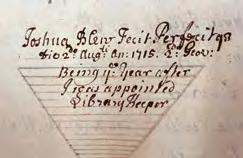 Joshua Blew Fecit Perfecitqꝫ
Dio 2do Augti. An: 1715. Rs: Geor:
Being ye Year after
I was appointed
Library Keeper